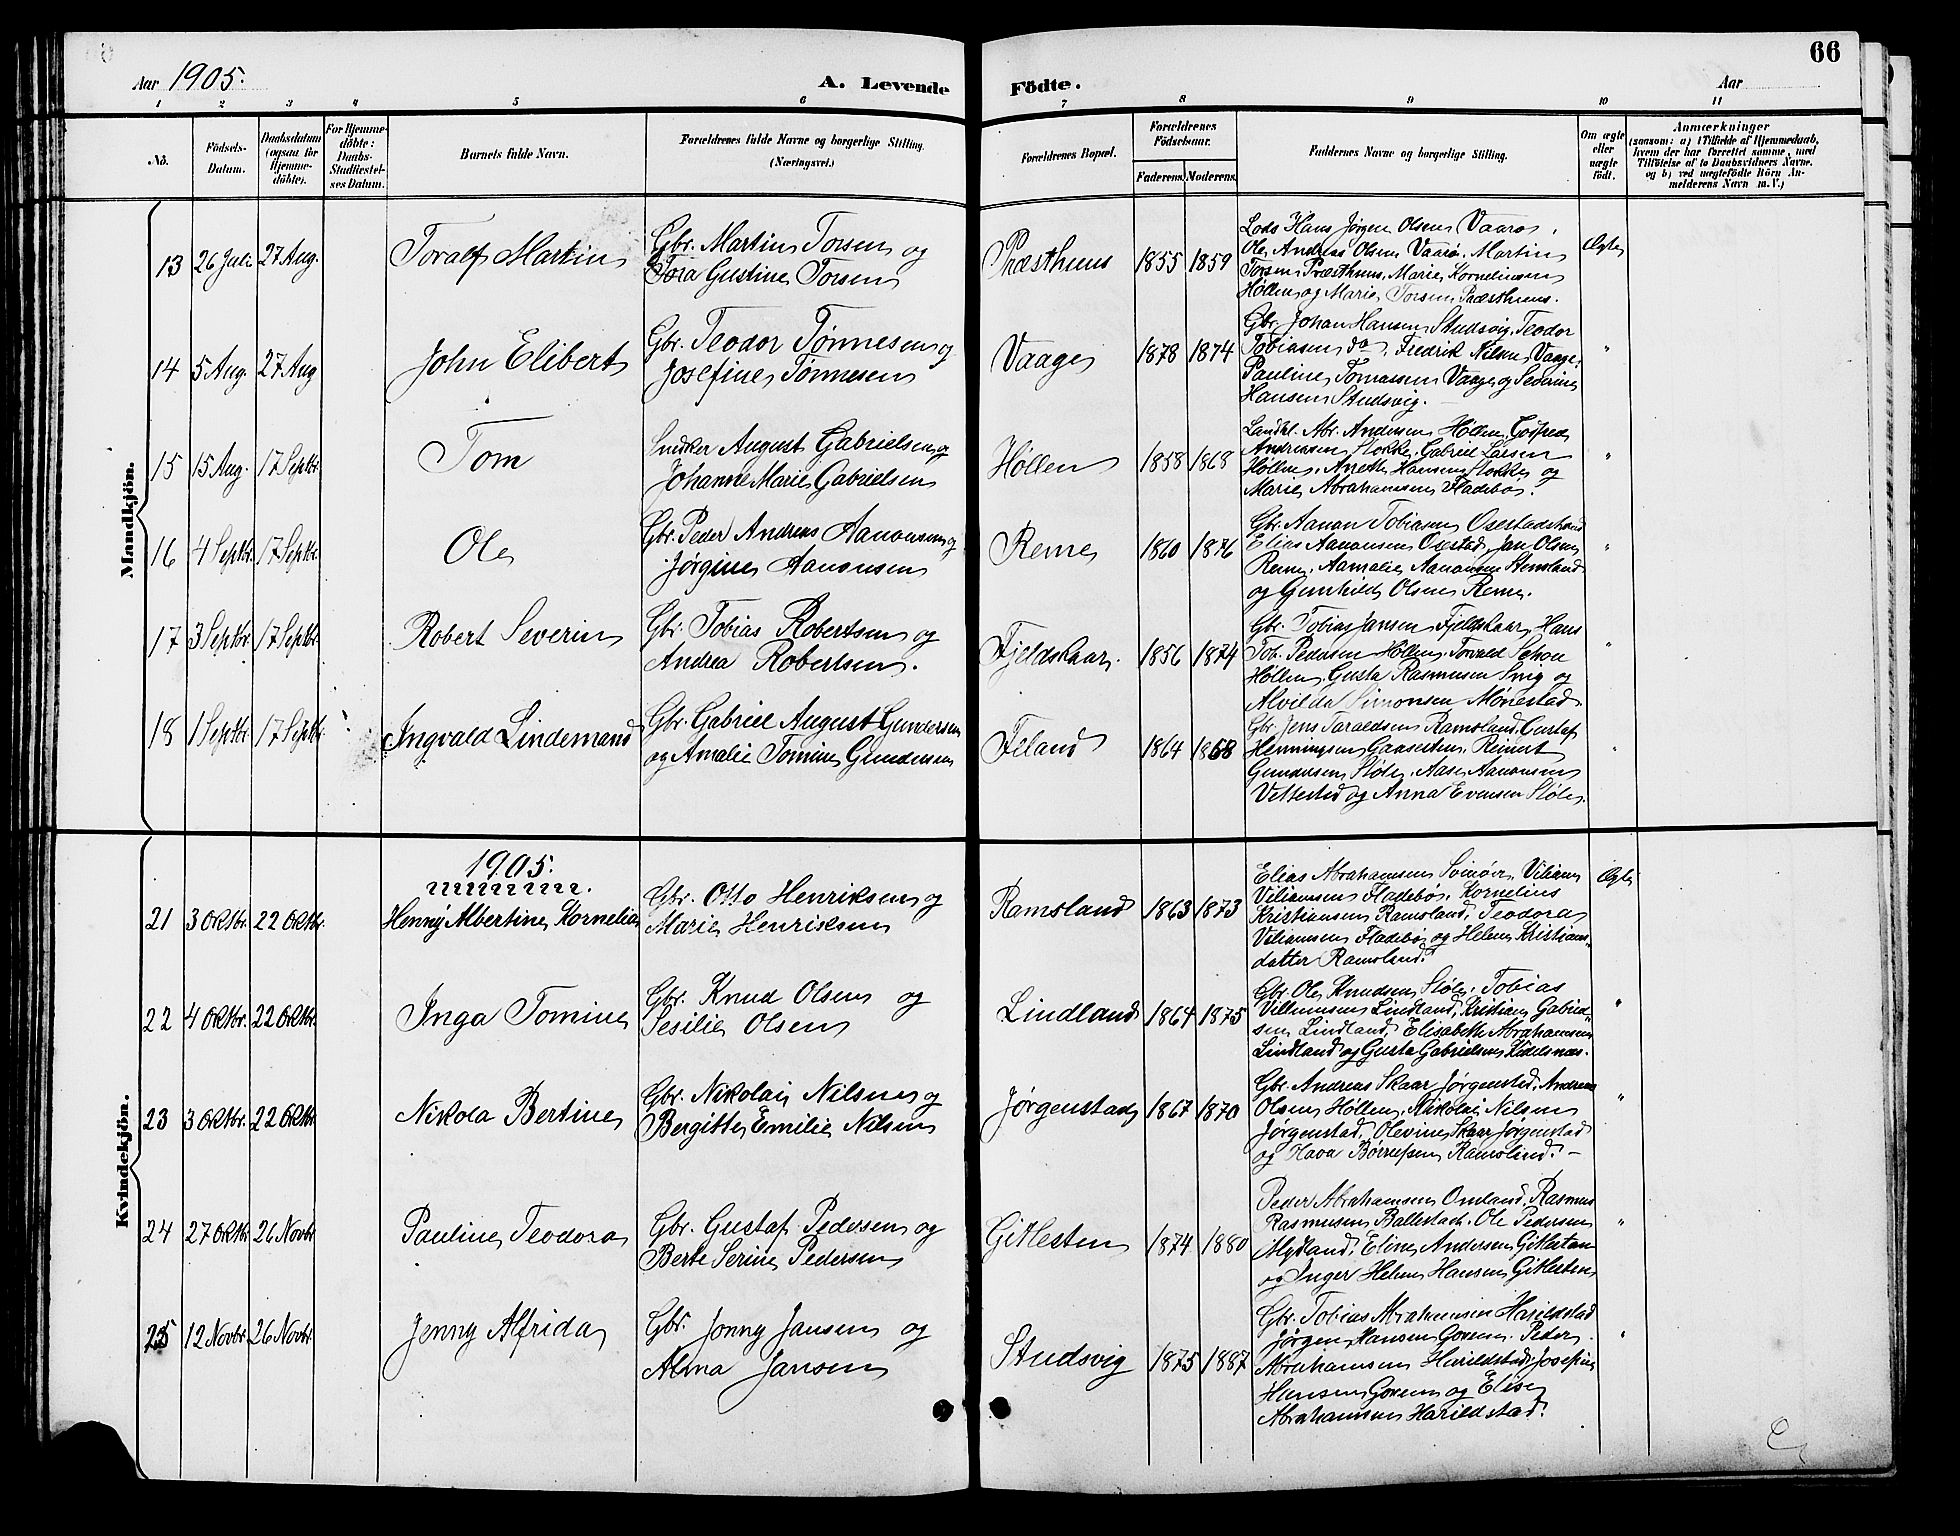 66
Aar 1905.
A. Levende Födte.
Aar
1 2 3 4 5 6 7 8 9 10 11
No.
Födsels-
Datum.
Daabsdatum
(ogsaa for
Hjemme-
döbte).
For Hjemme-
döbte:
Daabs-
Stadfæstel-
ses Datum.
Barnets fulde Navn.
Forældrenes fulde Navne og borgerlige Stilling.
(Næringsvei.)
Forældrenes Bopæl.
Forældrenes
Födselsaar.
Faderens. Moderens.
Faddernes Navne og borgerlige Stilling.
Om ægte
eller
uægte
født.
Anmærkninger
(saasom: a) i Tilfælde af Hjemmedaab,
hvem der har forrettet samme, med
Tilföielse af to Daabsvidners Navne.
og b) ved uægtefödte Börn An-
melderens Navn m. V.)
Mandkjön.
13 26 Juli 27 Aug. Toralf Martin
Gbr. Martin Torsen og
Tora Gustine Torsen
Præsthuus 1855 1859
Lods Hans Jørgen Olsen Vaarø,
Ole Andreas Olsen Vaarø, Martin
Torsen Præsthuus, Marie Kornelinsen
Høllen og Marie Torsen Præsthuus.
Ægte
14 5 Aug. 27 Aug John Elibert
Gbr. Teodor Tønnesen og
Josefine Tønnesen
Vaage 1878 1874
Gbr. Johan Hansen Studsvig, Teodor
Tobiasen do, Fredrik Nilsen Vaage,
Pauline Tomassen Vaage og Severine
Hansen Studsvig.
"
15 15 Aug. 17 Septbr. Tom
Snedker August Gabrielsen og
Johanne Marie Gabrielsen
Høllen 1858 1868
Landhl. Abr. Andersen Høllen, Gotfred
Andreasen Stokke, Gabriel Larsen
Høllen, Anette Hansen Stokke og
Marie Abrahamsen Fladebø.
"
16 4 Septbr. 17 Septbr. Ole
Gbr. Peder Andreas Aanonsen og
Jørgine Aanonsen
Reme 1860 1876
Gbr. Aanon Tobiasen Osestad
Elias Aanonsen Osestad, Jan Olsen
Reme, Aamalie Aanonsen Stensland
og Gunhild Olsen Reme.
"
17 3 Septbr. 17 Septbr. Robert Severin
Gbr. Tobias Robertsen og
Andrea Robertsen.
Fjeldskaar. 1856 1874
Gbr. Tobias Jansen Fjeldskaar, Hans
Tob. Pedersen Høllen, Torvald
Høllen, Gusta Rasmussen Snig og
Alvilda Simonsen Mønestad.
"
18 1 Septbr. 17 Septbr. Ingvald Lindemand
Gbr. Gabriel August Gundersen
og Amalie Tomine Gundersen
Feland 1864 1868
Gbr. Jens Taraldsen Ramsland, Gustaf
Henningsen Gaasesten, Reinert
Gundersen Støle, Aase Aanonsen
Vettested og Anna Evensen Støle.
"
Kvindekjön.
1905.
21 3 Oktbr. 22 Oktbr. Henny Albertine Kornelia
Gbr. Otto Henriksen og
Marie Henriksen
Ramsland 1863 1873
Elias Abrahamsen, Viliam
Viliamsen Fladebø, Kornelius
Kristiansen Ramsland, Teodora
Viliamsen Fladebø og Helene Kristians-
datter Ramsland.
Ægte
22 4 Oktbr. 22 Oktbr. Inga Tomine
Gbr. Knud Olsen og
Sesilie Olsen
Lindland 1864 1875
Gbr. Ole Knudsen Støle, Tobias
Villumsen Lindland, Kristian Gabriel-
sen Lindland, Elisabeth Abrahamsen
Lindland og Gusta Gabrielsen Kidelsnæs.
"
23 3 Oktbr. 22 Oktbr Nikola Bertine
Gbr. Nikolai Nilsen og
Bergitte Emilie Nilsen
Jørgenstad 1867 1870
Gbr. Andreas Skaar Jørgenstad, Andreas
Olsen Høllen, Nikolai Nilsen
Jørgenstad, Olevine Skaar Jørgenstad
og Hava Børresen Ramsland. –
"
24 27 Oktbr. 26 Novbr Pauline Teodora
Gbr. Gustaf Pedersen og
Berte Serine Pedersen
Gitlesten 1874 1880
Peder Abrahamsen Omland, Rasmus
Rasmusen Ballestad, Ole Pedersen
Mydland, Eline Andersen Gitlestan
og Inger Helene Hansen Gitlesten
"
25 12 Novbr. 26 Novbr. Jenny Alfrida
Gbr. Jonny Jansen og
Alma Jansen
Studsvig 1875 1887
Gbr. Tobias Abrahamsen Harildstad
Jørgen Hansen Goven, Peder
Abrahamsen Harildstad, Josefine
Hansen Goven og Elise
Abrahamsen Harildstad.
"